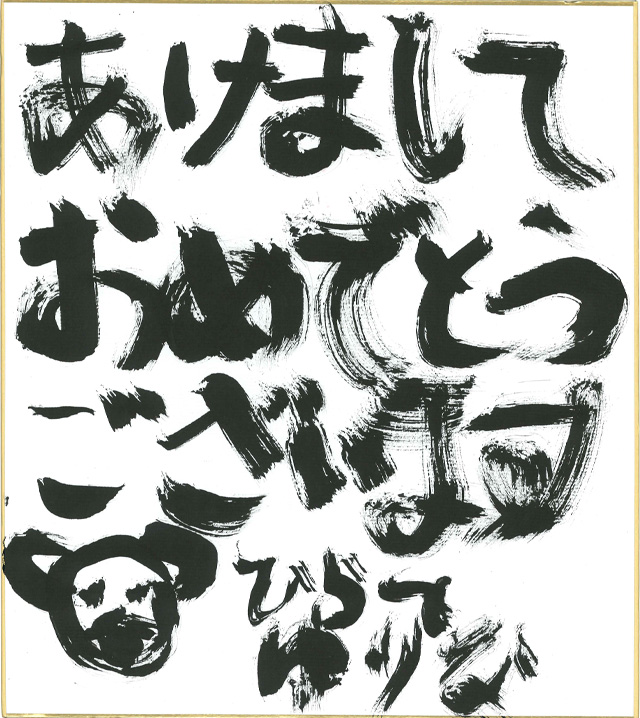 あけまして
おめでとう
ございます
ひらて
ゆりな